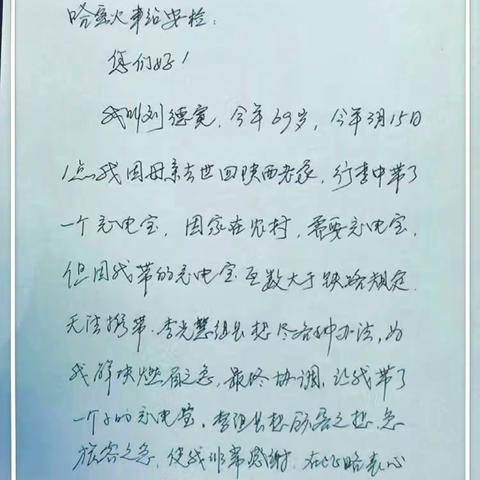 哈密火车站安检:
您们好!
我叫刘德宽,今年69岁,今年3月15日
1点我因母亲去世回陕西老家,行李中带了
一个充电宝,因家在农村,需要充电宝,
但因我带的充电宝瓦数大于铁路规定
无法携带.李光慧组长想尽各种办法,为
我解决燃眉之急,最终协调,让我带了
一个小的充电宝,李组长想旅客之想,急
旅客之急,使我非常感谢,在此略表心